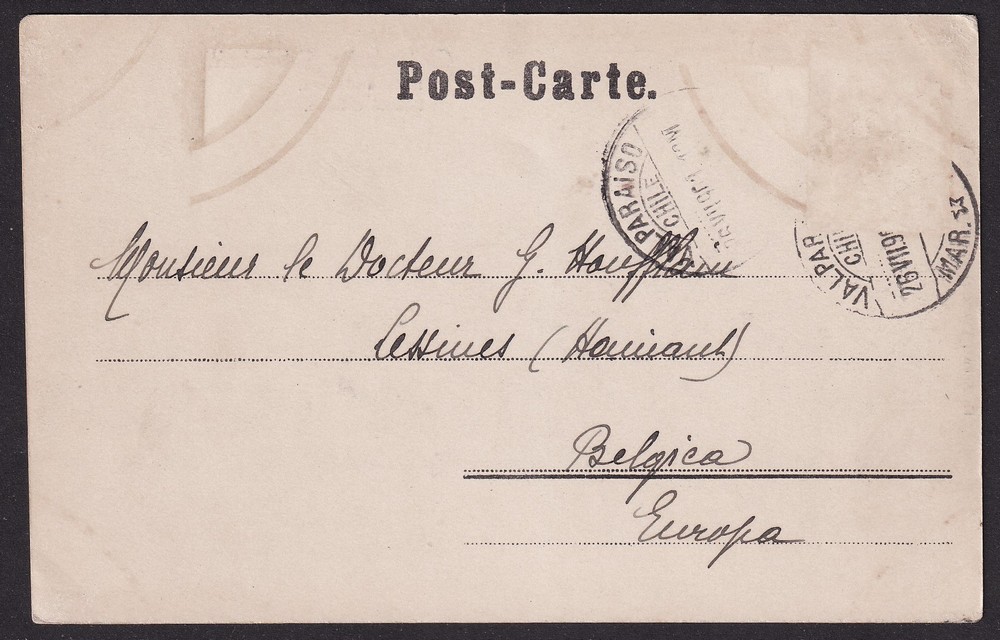 Post-Carte.
VALPARAISO
CHILE
VALPAR
CHI
26 VII 19
MAR.
Monsieur le Docteur G.
Lessines (Hainaut)
Belgica
Europa